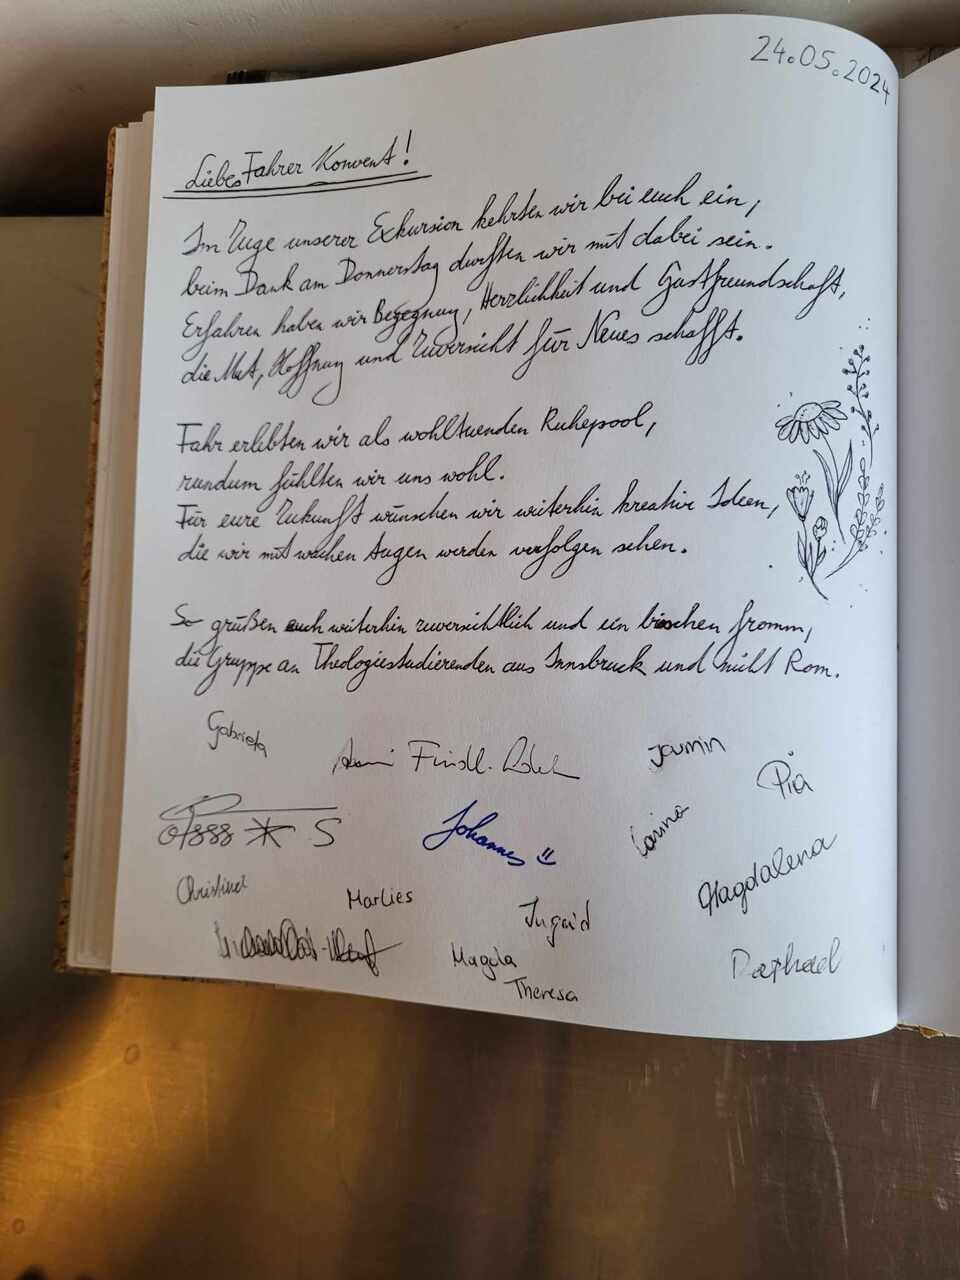 24.05.2024
Liebes Fahrer Konvent!
Im Zuge unserer Exkursion kehrten wir bei euch ein,
beim Dank am Donnerstag durften wir mit dabei sein.
Erfahren haben wir Begegnung, Herzlichkeit und Gastfreundschaft,
die Mut, Hoffnung und Zuversicht für Neues schafft.
Fahr erlebten wir als wohltuenden Ruhepool,
rundum fühlten wir uns wohl.
Für eure Zukunft wünschen wir weiterhin kreative Ideen,
die wir mit wachen Augen werden verfolgen sehen.
So grüßen euch weiterhin zuversichtlich und ein bisschen fromm,
die Gruppe an Theologiestudierenden aus Innsbruck und nicht Rom.
Gabriela
Jasmin
Pia
Johannes
Carina
Magdalena
Marlies
Ingrid
Magda
Theresa
Raphael